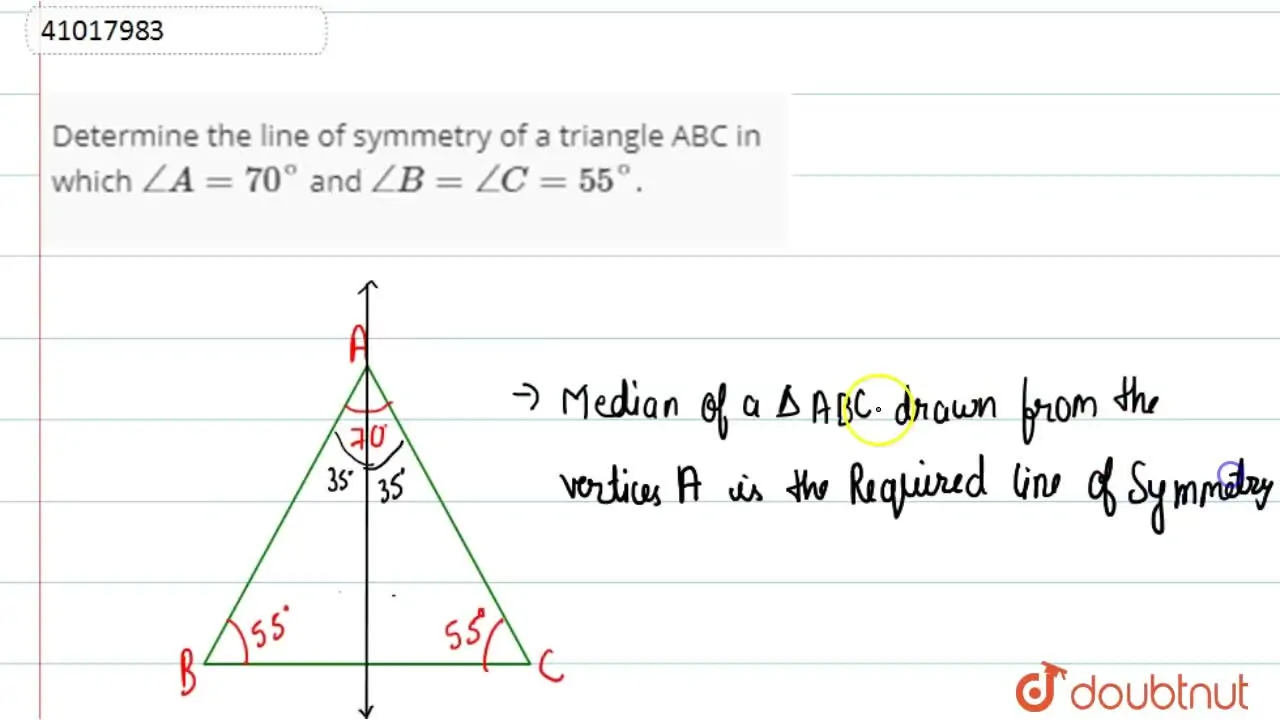 41017983
Determine the line of symmetry of a triangle ABC in
which ∠A = 70° and ∠B = ∠C = 55°.
A
70°
35° 35°
55° 55°
B C
→ Median of a Δ ABC. drawn from the
vertices A is the Required line of Symmetry
doubtnut